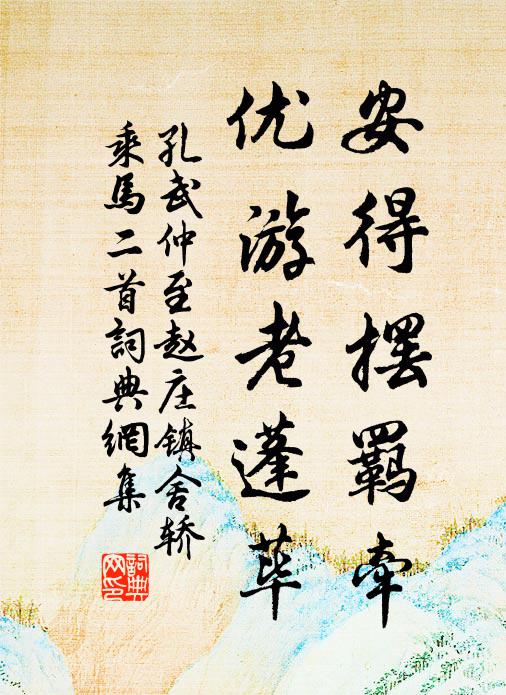 安得摆羁牵
优游老蓬荜
孔武仲至赵庄镇舍轿
乘馬二首詞典網集
詞典
网印